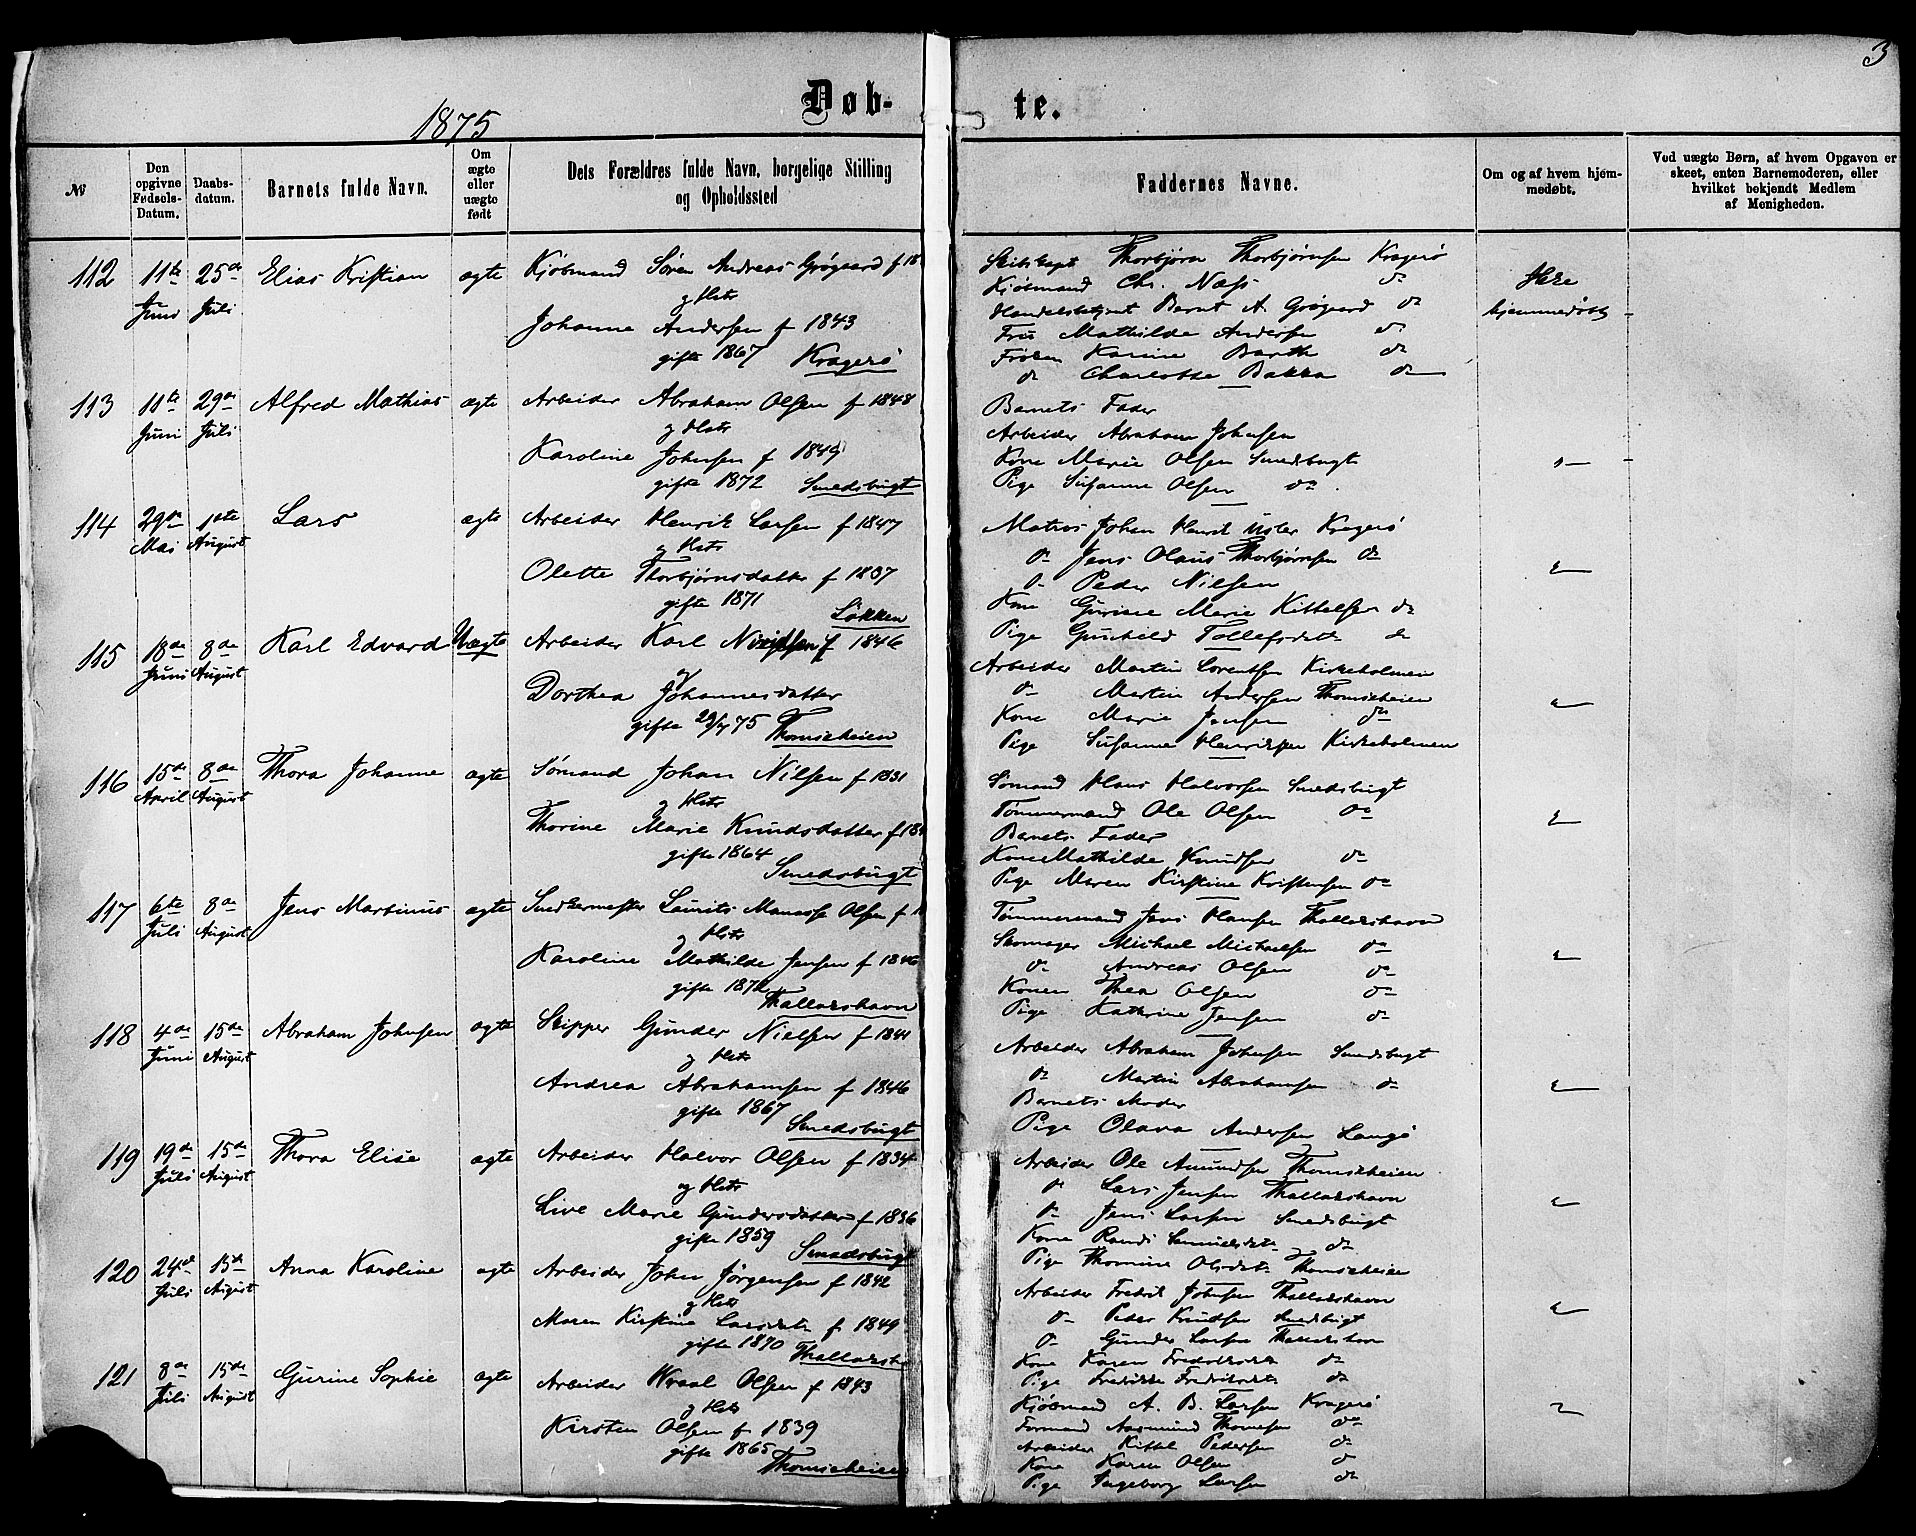 3
Døb-
te.
1875
№
Den opgivne Fødsels-Datum.
Daabs-datum.
Barnets fulde Navn.
Om ægte eller uægte født
Dets Forældres fulde Navn, borgelige Stilling og Opholdssted
Faddernes Navne.
Om og af hvem hjem-medøbt.
Ved uægte Børn, af hvem Opgaven er skeet, enten Barnemoderen, eller hvilket bekjendt Medlem af Menigheden.
112 11te Juni 25de Juli Elias Kristian ægte Kjøbmand Søren Andreas Grøgaard f 18
og Hstr
Johanne Andersen f 1843
gifte 1867 Kragerø
Skibskapt Thorbjørn Thorbjørnsen Kragerø
Kjøbmand Chr. Næss do
Handelsbetjent Bernt A. Grøgaard do
Fru Mathilde Andersen do
Frøken Karine Barth do
do Charlotte Bakka do
Ikke hjemmedøbt
113 11te Juni 29de Juli Alfred Mathias ægte Arbeider Abraham Olsen f 1848
og Hstr
Karoline Johnsen f 1849
gifte 1872 Smedsbugt
Barnets Fader
Arbeider Abraham Johnsen
Kone Marie Olsen Smedsbugt
Pige Susanne Olsen do
114 29de Mai 1ste August Lars ægte Arbeider Henrik Larsen f 1847
og Hstr
Olette Thorbjørnsdatter f 1837
gifte 1871
Løkken
Matros Johan Henrik Uster Kragerø
do Jens Olaus Thorbjørnsen do
do Peder Nilsen
Kone Gurine Marie Kittelsen do
Pige Gunhild Tollefsdatr do
115 18de Juni 8de August Karl Edvard Uægte Arbeider Karl f 1846
og
Dorthea Johannesdatter
gifte 29/7 75 Thomseheien
Arbeider Martin Lorentsen Kirkeholmen
do Martin Andersen Thomseheien
Kone Marie Jensen do
Pige Susanne Henriksen Kirkeholmen
116 15de April 8de August Thora Johanne ægte Sømand Johan Nilsen f 1831
og Hstr
Thorine Marie Knudsdatter f 184
gifte 1864
Smedsbugt
Sømand Hans Halvorsen Smedsbugt
Tømmermand Ole Olsen do
Barnets Fader
Kone Mathilde Knudsen do
Pige Maren Kirstine Kristensen do
117 6te Juli 8de August Jens Martinus ægte Snedkermester Laurits Manasse Olsen f 1
og Hstr
Karoline Mathilde Jensen f 1846
gifte 1872
Thallakshavn
Tømmermand Jens Hansen Thallakshavn
Skomager Michael Michaelsen do
do Andreas Olsen do
Konen Thea Olsen do
Pige Kathrine Jensen do
118 4de Juni 15de August Abraham Johnsen ægte Skipper Gunder Nielsen f 1841
og Hstr
Andrea Abrahamsen f 1846
gifte 1867
Smedsbugt
Arbeider Abraham Johnsen Smedsbugt
do Martin Abrahamsen do
Barnets Moder
Pige Olava Andersen Langø
119 19de Juli 15de August Thora Elise ægte Arbeider Halvor Olsen f 1834
og Hstr
Live Marie Gundersdatter f 1836
gifte 1859
Smedsbugt
Arbeider Ole Amundsen Thomseheien
do Lars Jensen Thallakshavn
do Jens Larsen Smedsbugt
Kone Randi do
Pige Thomine Olsdatr Thomseheien
120 24de Juli 15de August Anna Karoline ægte Arbeider John Jørgensen f 1842
og Hstr
Maren Kirstine Larsdatr f 1849
gifte 1870 Thallaksh
Arbeider Fredrik Johnsen Thallakshavn
do Peder Knudsen Smedsbugt
do Gunder Larsen Thallakshavn
Kone Karen Fredriksdatr do
Pige Fredrikke Fredriksdatr do
121 8de Juli 15de August Gurine Sophie ægte Arbeider Wraal Olsen f 1843
og Hstr
Kirsten Olsen f 1839
gifte 1865
Thomseheien
Kjøbmand A. B. Larsen Kragerø
Formand Aasmund Thomesen do
Arbeider Kittel Pedersen do
Kone Karen Olsen do
Pige Ingeborg Larsen do